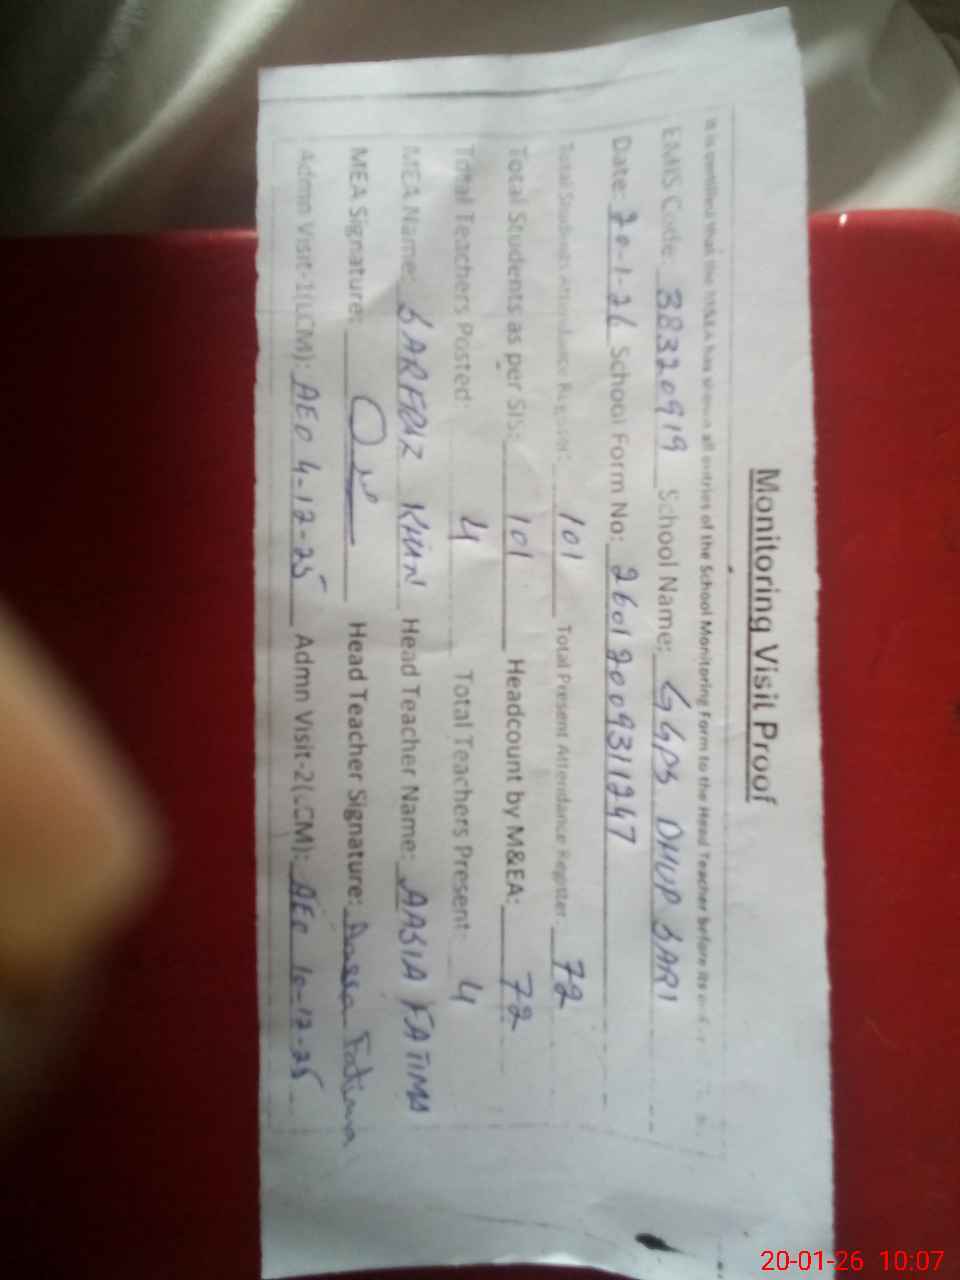 Monitoring Visit Proof
It is certified that the M&EA has shown all entries of the School Monitoring Form to the Head Teacher before its
EMIS Code: 38320919 School Name: GGPS DHUP SARI
Date: 20-1-26 School Form No: 26012009311247
Total Students Attendance Register: 101 Total Present Attendance Register: 72
Total Students as per SIS: 101 Headcount by M&EA: 72
Total Teachers Posted: 4 Total Teachers Present: 4
MEA Name: SARFRAZ KHAN Head Teacher Name: AASIA FATIMA
MEA Signature: Head Teacher Signature: Aasia Fatima
Admn Visit-1(LCM): AEO 4-12-25 Admn Visit-2(LCM): AEO 10-12-25
20-01-26 10:07